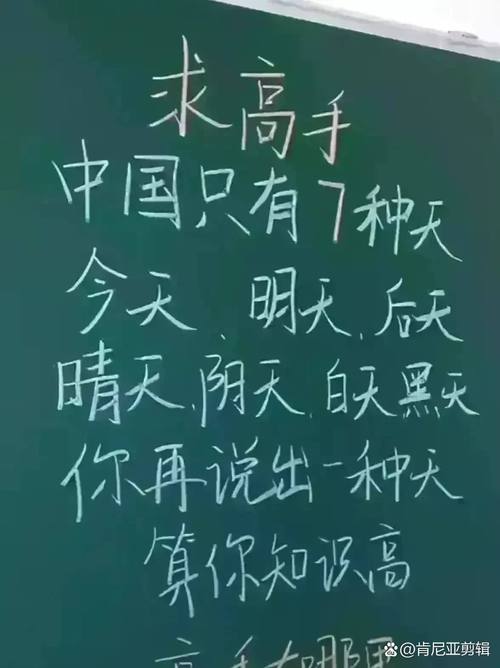 求高手
中国只有7种天
今天、明天、后天
晴天、阴天、白天黑天
你再说出一种天
算你知识高
高手在哪里
肯尼亚剪辑